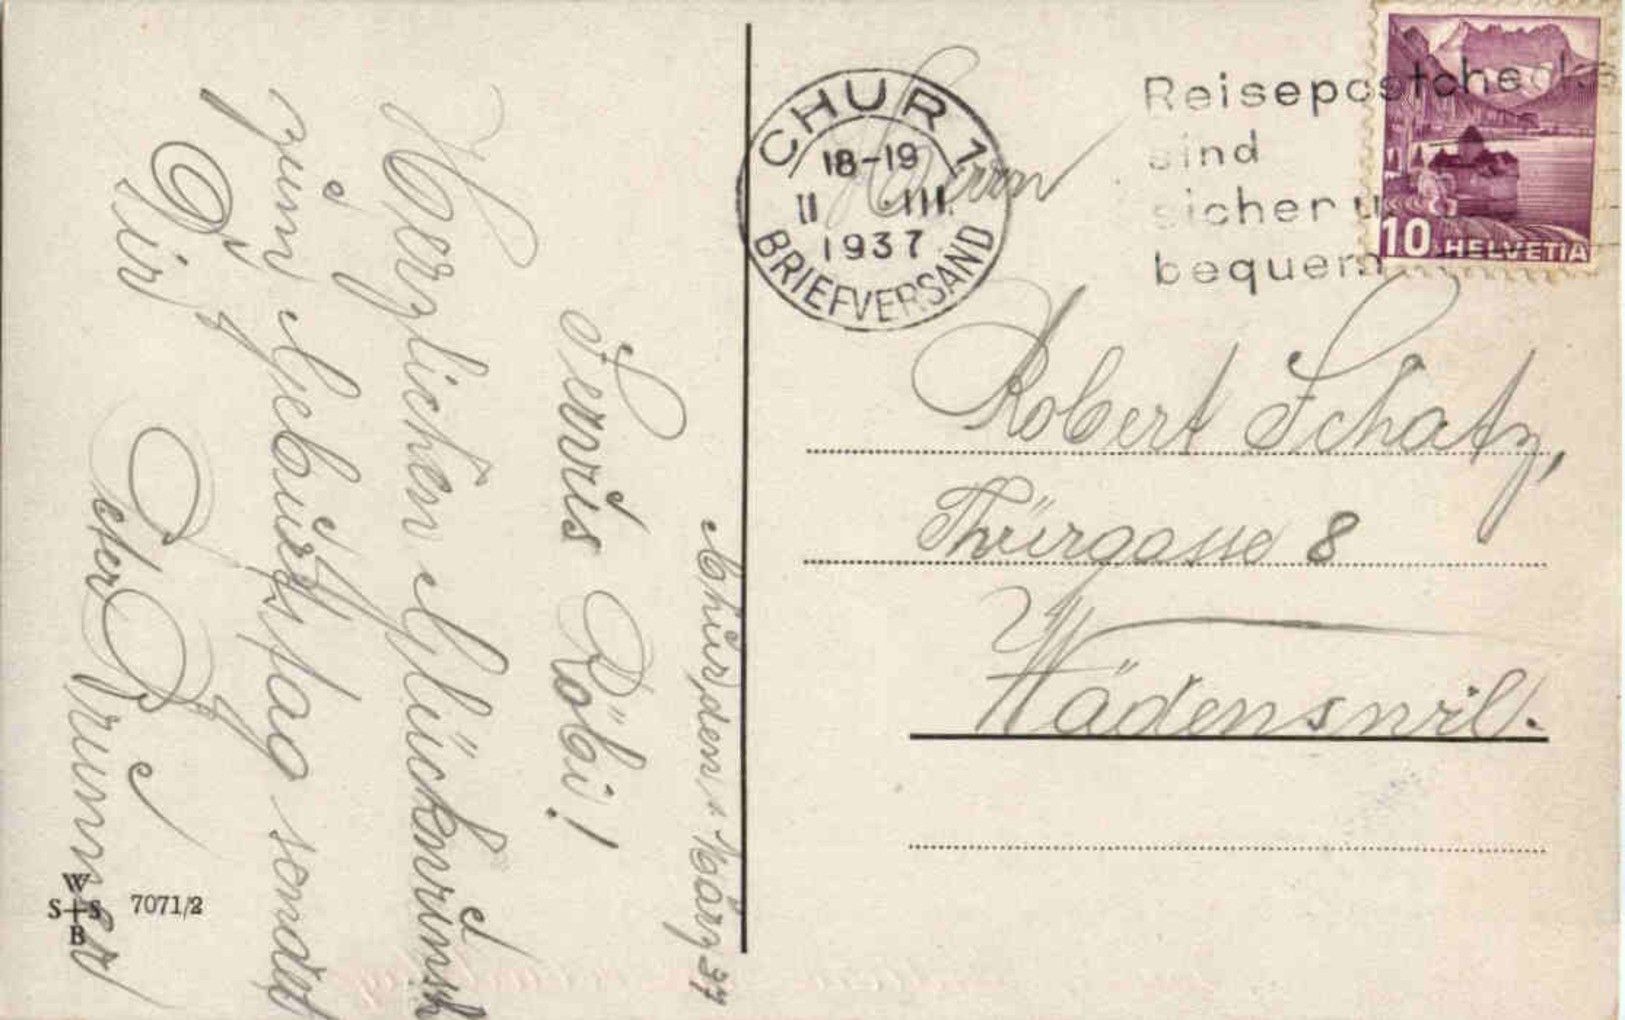 Chur, den 1 März 37
Servus Röbi!
Herzlichen Glückwunsch
zum Geburtstag sendet
Dir
der
CHUR 1
18-19
II .III.
1937
BRIEFVERSAND
Reisepostchecks
sind
sicher u
bequem
10 HELVETIA
Herrn
Robert Schatz,
Thurgasse 8
Wädenswil.
W
S+S
B
7071/2